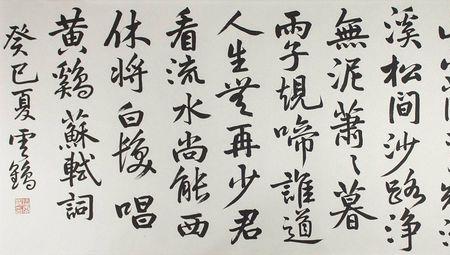 溪松間沙路净
無泥蕭〻暮
雨子規啼誰道
人生無再少君
看流水尚能西
休將白髮唱
黄鷄蘇軾詞
癸巳夏雲鶴